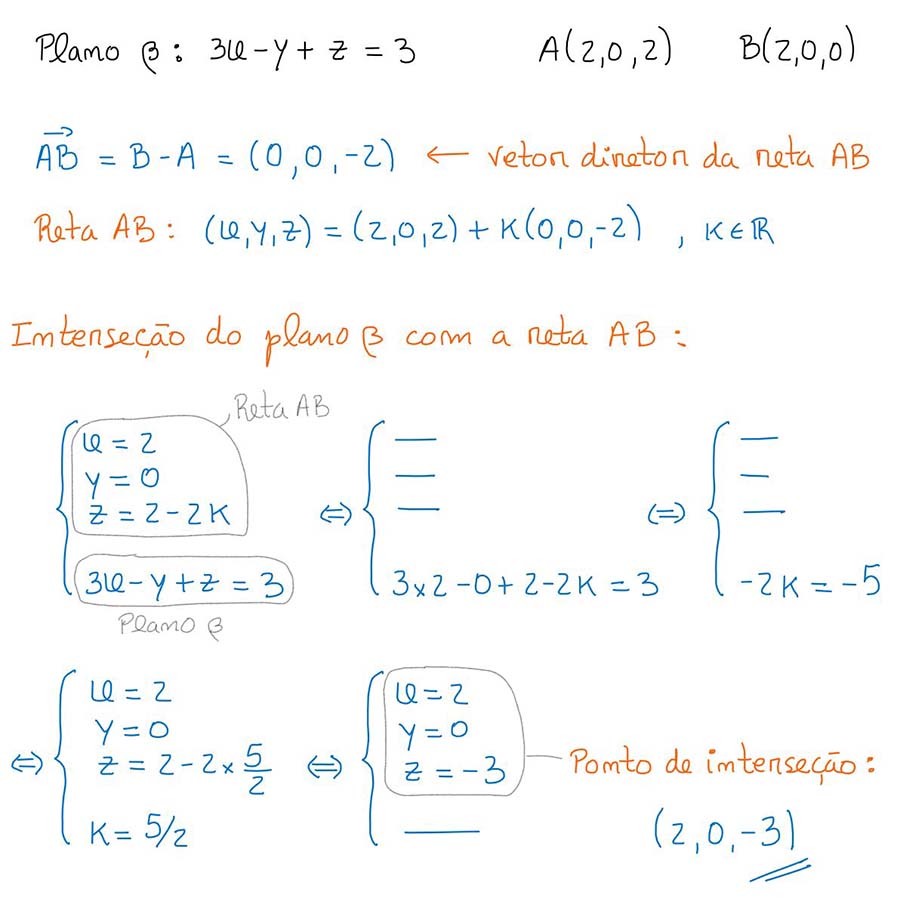 Plano β: 3x-y+z=3 A(2,0,2) B(2,0,0)
AB = B-A = (0,0,-2) ← vetor diretor da reta AB
Reta AB: (x,y,z)=(2,0,2)+K(0,0,-2) , K∈ℝ
Interseção do plano β com a reta AB:
Reta AB
x = 2
y = 0
z = 2-2K
3x-y+z = 3
Plano β
⇔ 3×2-0+2-2K = 3
⇔ -2K = -5
⇔ x = 2
y = 0
z = 2-2×5/2
K = 5/2
⇔ x = 2
y = 0
z = -3
Ponto de interseção:
(2,0,-3)